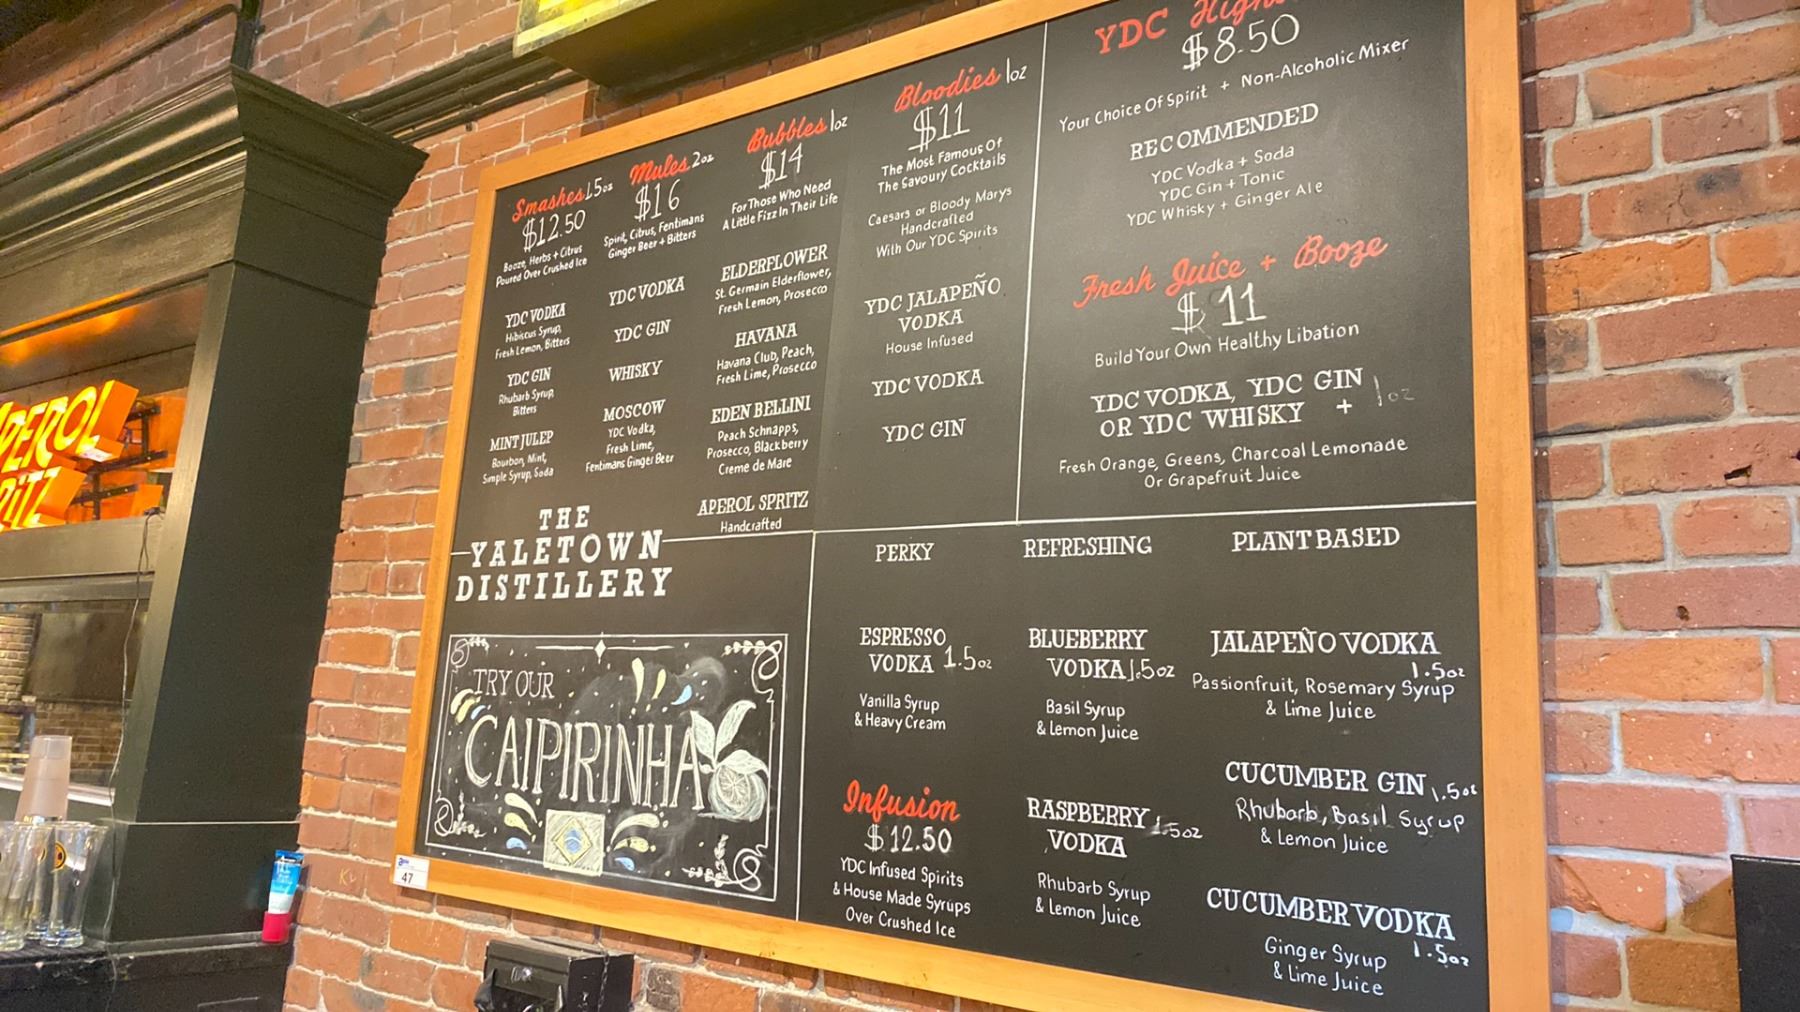 Smashes 1.5oz
$12.50
Booze, Herbs + Citrus
Poured Over Crushed Ice
YDC VODKA
Hibiscus Syrup,
Fresh Lemon, Bitters
YDC GIN
Rhubarb Syrup,
Bitters
MINT JULEP
Bourbon, Mint,
Simple Syrup, Soda
Mules 2oz
$16
Spirit, Citrus, Fentimans
Ginger Beer + Bitters
YDC VODKA
YDC GIN
WHISKY
MOSCOW
YDC Vodka,
Fresh Lime,
Fentimans Ginger Beer
Bubbles 1oz
$14
For Those Who Need
A Little Fizz In Their Life
ELDERFLOWER
St. Germain Elderflower,
Fresh Lemon, Prosecco
HAVANA
Havana Club, Peach,
Fresh Lime, Prosecco
EDEN BELLINI
Peach Schnapps,
Prosecco, Blackberry
Creme de Mare
APEROL SPRITZ
Handcrafted
Bloodies 1oz
$11
The Most Famous Of
The Savoury Cocktails
Caesars or Bloody Marys
Handcrafted
With Our YDC Spirits
YDC JALAPEÑO
VODKA
House Infused
YDC VODKA
YDC GIN
YDC
$8.50
Your Choice Of Spirit + Non-Alcoholic Mixer
RECOMMENDED
YDC Vodka + Soda
YDC Gin + Tonic
YDC Whisky + Ginger Ale
Fresh Juice + Booze
$11
Build Your Own Healthy Libation
YDC VODKA, YDC GIN
OR YDC WHISKY + 1oz
Fresh Orange, Greens, Charcoal Lemonade
Or Grapefruit Juice
THE
YALETOWN
DISTILLERY
TRY OUR
CAIPIRINHA
PERKY
ESPRESSO
VODKA 1.5oz
Vanilla Syrup
& Heavy Cream
Infusion
$12.50
YDC Infused Spirits
& House Made Syrups
Over Crushed Ice
REFRESHING
BLUEBERRY
VODKA 1.5oz
Basil Syrup
& Lemon Juice
RASPBERRY 1.5oz
VODKA
Rhubarb Syrup
& Lemon Juice
PLANT BASED
JALAPEÑO VODKA
1.5oz
Passionfruit, Rosemary Syrup
& Lime Juice
CUCUMBER GIN 1.5oz
Rhubarb, Basil Syrup
& Lemon Juice
CUCUMBER VODKA
1.5oz
Ginger Syrup
& Lime Juice
47
APEROL